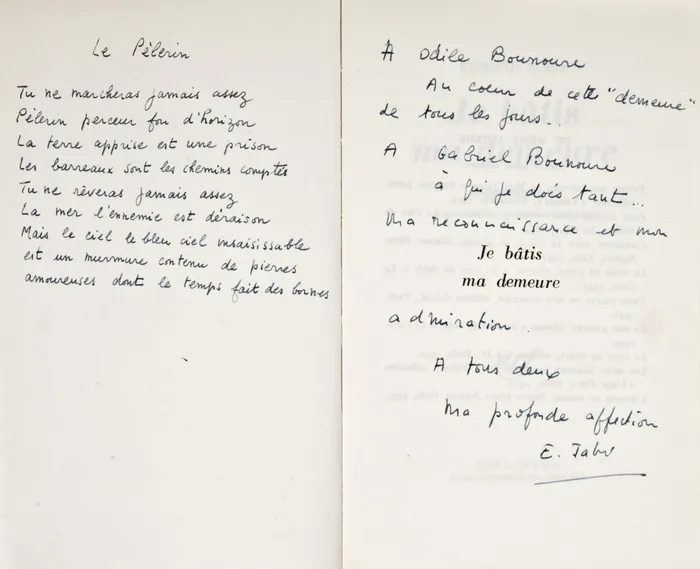 Le Pèlerin
Tu ne marcheras jamais assez
Pèlerin perceur fou d'horizon
La terre apprise est une prison
Les barreaux sont les chemins comptés
Tu ne rêveras jamais assez
La mer l'ennemie est déraison
Mais le ciel le bleu ciel insaisissable
est un murmure contenu de pierres
amoureuses dont le temps fait des bornes
A Odile Bounoure
Au coeur de cette "demeure"
de tous les jours...
A Gabriel Bounoure
à qui je dois tant...
Ma reconnaissance et mon
Je bâtis
ma demeure
admiration.
A tous deux
Ma profonde affection
E. Jabès